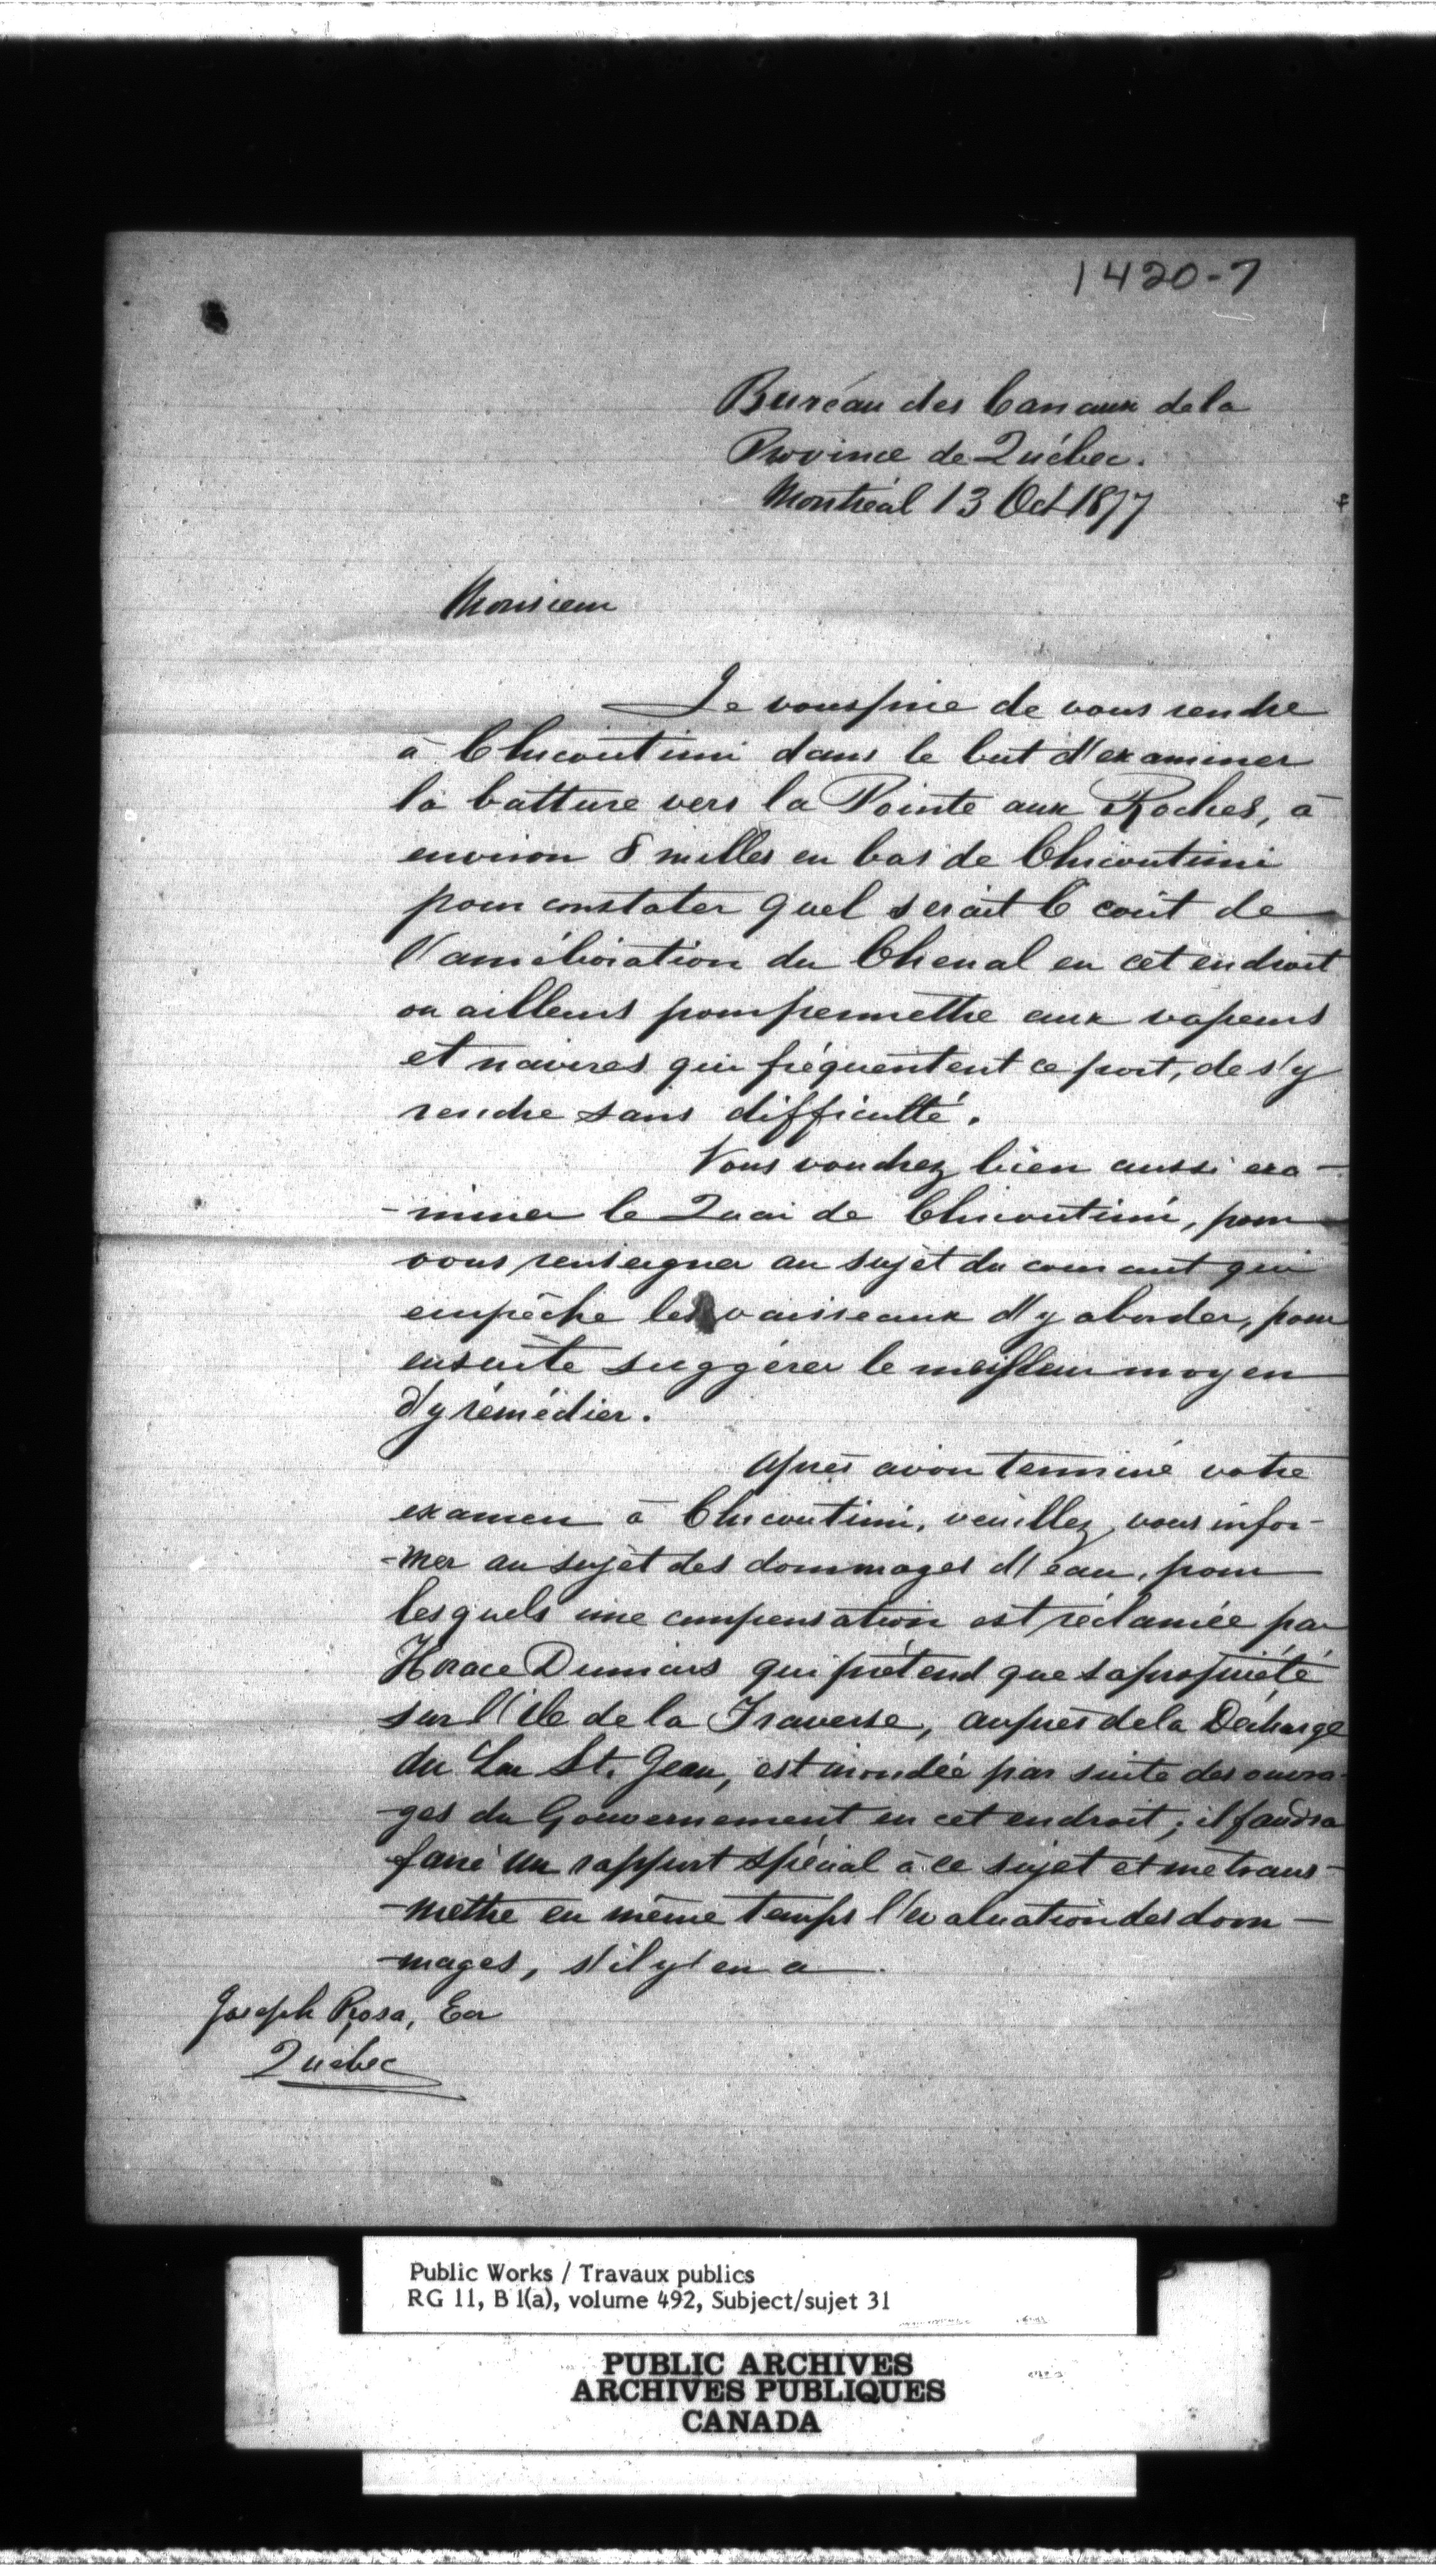 1420-7
Bureau des Canaux de la
Province de Québec.
Montréal 13 Oct 1877
Monsieur
Je vous prie de vous rendre
à Chicoutimi dans le but d'examiner
la batture vers la Pointe aux Roches, à
environ 8 milles en bas de Chicoutimi
pour constater quel serait le coût de
l'amélioration du Chenal en cet endroit
ou ailleurs pour permettre aux vapeurs
et navires qui fréquentent ce port, de s'y
rendre sans difficulté.
Vous voudrez bien aussi exa-
-miner le Quai de Chicoutimi, pour
vous renseigner au sujet du courant qui
empêche les vaisseaux d'y aborder, pour
ensuite suggérer le meilleur moyen
d'y rémédier.
Après avoir terminé votre
examen à Chicoutimi, veuillez vous infor-
-mer au sujet des dommages d'eau, pour
lesquels une compensation est réclamée par
Horace Dumais qui prétend que sa propriété
sur l'île de la Traverse, auprès de la Décharge
du Lac St. Jean, est inondée par suite des ouvra-
-ges du Gouvernement en cet endroit; il faudra
faire un rapport spécial à ce sujet et me trans-
-mettre en même temps l'évaluation des dom-
-mages, s'il y en a.
Joseph Rosa, Ecr
Québec
Public Works / Travaux publics
RG 11, B 1(a), volume 492, Subject/sujet 31
PUBLIC ARCHIVES
ARCHIVES PUBLIQUES
CANADA